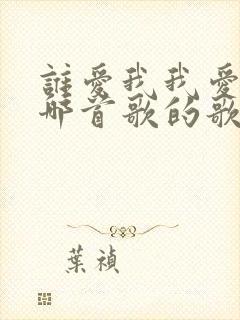 誰愛我我愛
哪首歌的歌
葉禎